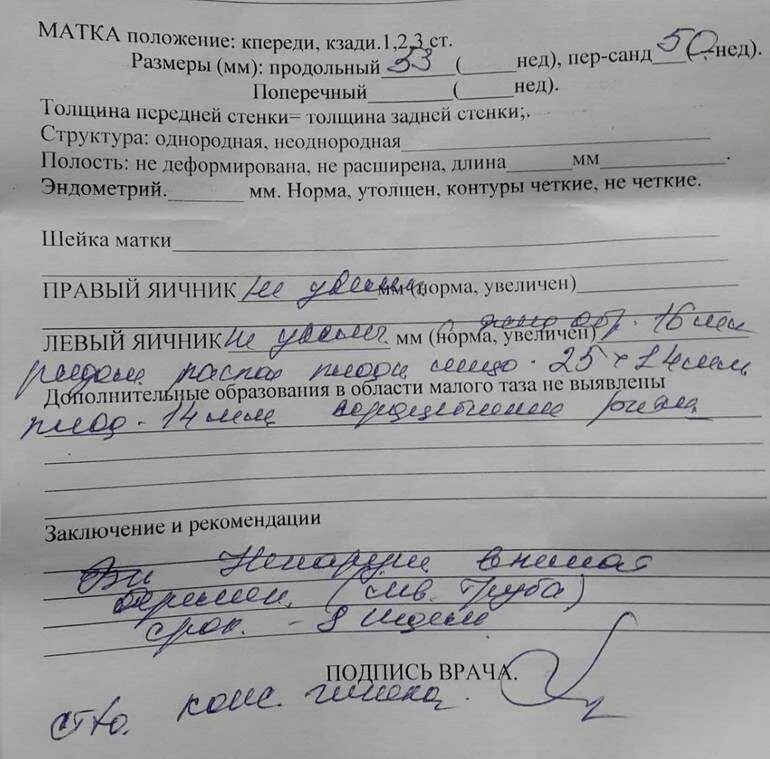 МАТКА положение: кпереди, кзади.1,2,3 ст.
Размеры (мм): продольный 53 (____нед), пер-санд 50 (.-нед).
Поперечный_______ (____ нед).
Толщина передней стенки= толщина задней стенки;.
Структура: однородная, неоднородная
Полость: не деформирована, не расширена, длина______мм
Эндометрий._______ мм. Норма, утолщен, контуры четкие, не четкие.
Шейка матки
ПРАВЫЙ ЯИЧНИК не увелич. мм (норма, увеличен)
ЛЕВЫЙ ЯИЧНИК не увелич. мм (норма, увеличен) обр. 16 мм
рядом распол плодн яйцо - 25 × 24 мм,
Дополнительные образования в области малого таза не выявлены
плод - 14 мм
Заключение и рекомендации
внемат
беремен. (лев. труба)
срок - 8 недель
ПОДПИСЬ ВРАЧА.
конс. гинека.